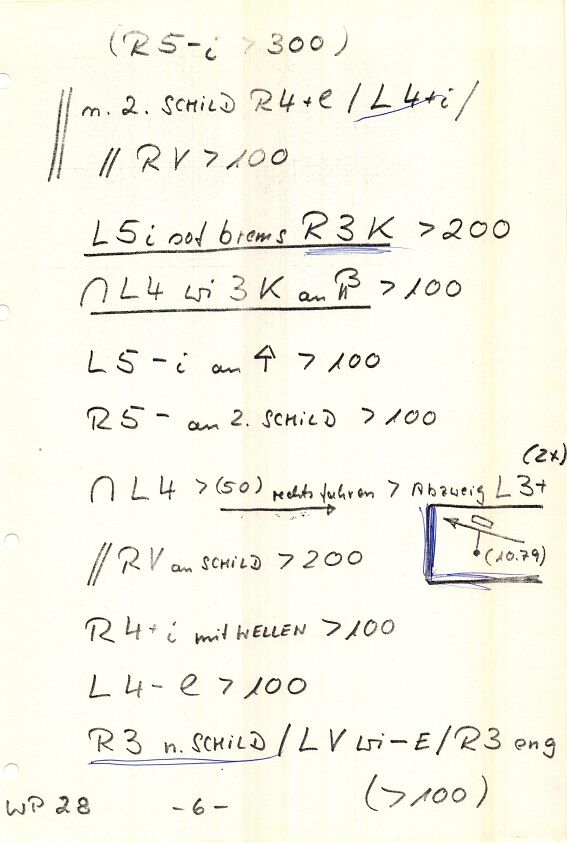 (R5-i > 300)
// n. 2. SCHILD R4+e / L4+i /
// RV > 100
L5i sof brems R3K > 200
∩ L4 wi 3K an > 100
L5-i an ↑ > 100
R5- an 2. SCHILD > 100
(2x)
∩ L4 > (50) rechts fahren > Abzweig L3+
(10.79)
// RV an SCHILD > 200
R4+i mit WELLEN > 100
L4-e > 100
R3 n. SCHILD / LV wi-E / R3 eng
(>100)
WP 28 -6-